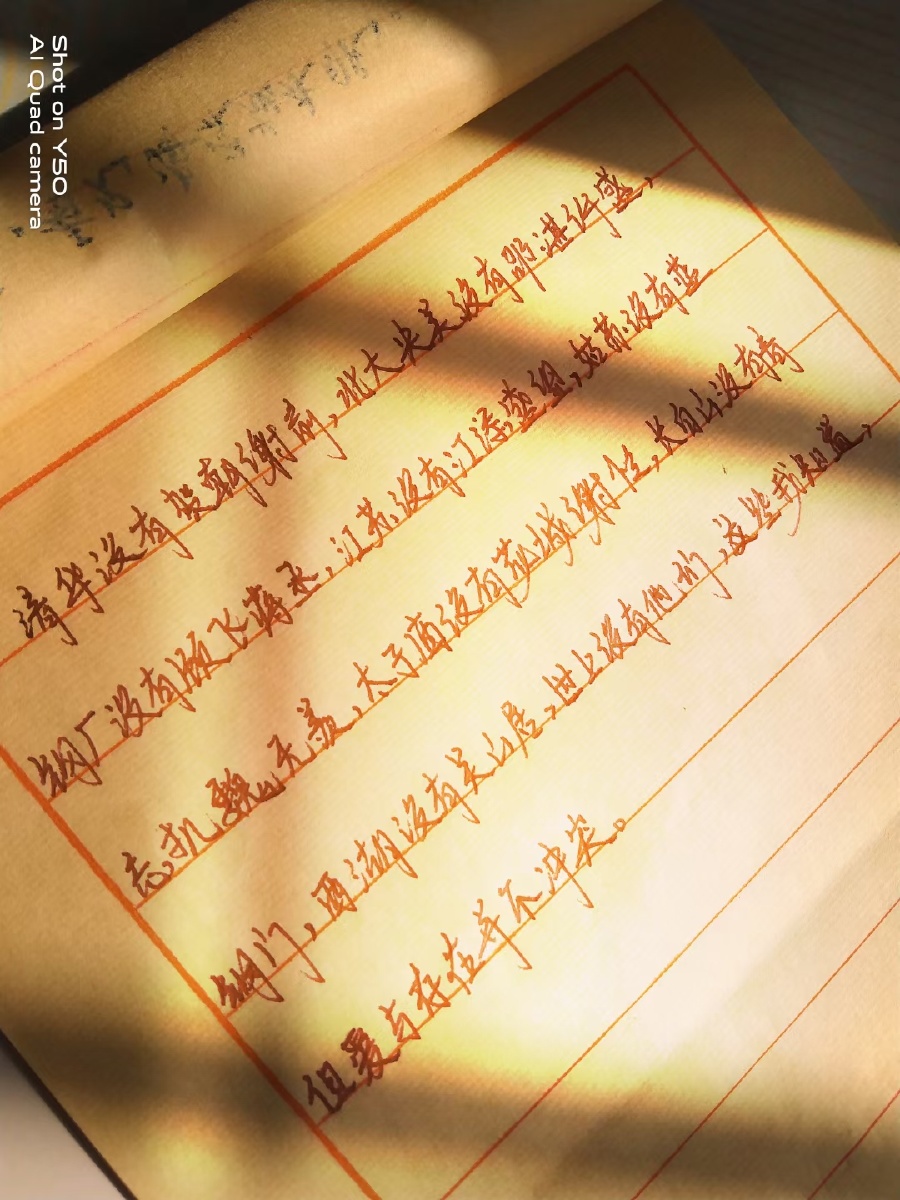 Shot on Y50
AI Quad camera
清华没有贺朝谢俞,北大央美没有邵湛许盛,
钢厂没有顾飞蒋丞,江苏没有江添盛望,姑苏没有蓝
忘机魏无羡,太子庙没有花城谢怜,长白山没有青
铜门,西湖没有吴山居,世上没有他们,这些我知道,
但爱与存在并不冲突。